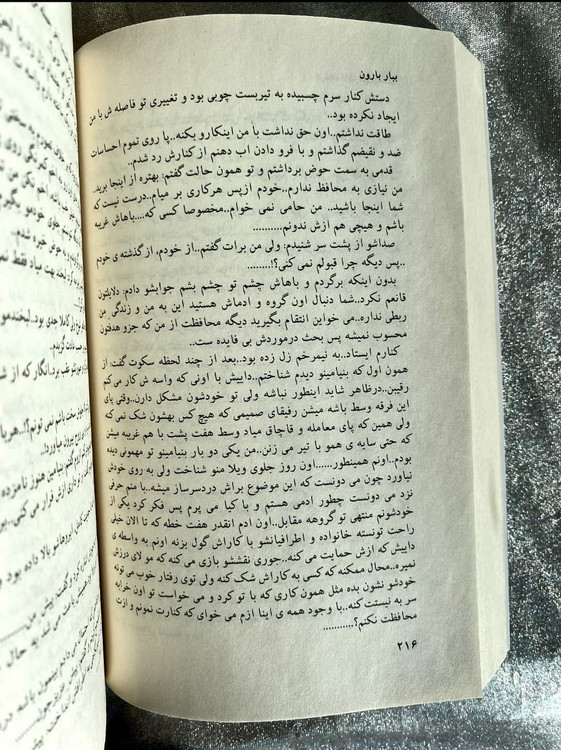 ببار بارون
دستش کنار سرم چسبیده به تیربست چوبی بود و تغییری تو فاصله ش با من
ایجاد نکرده بود..
طاقت نداشتم..اون حق نداشت با من اینکارو بکنه..پا روی تموم احساسات
ضد و نقیضم گذاشتم و با فرو دادن اب دهنم از کنارش رد شدم..
قدمی به سمت حوض برداشتم و تو همون حالت گفتم: بهتره از اینجا برید..
من نیازی به محافظ ندارم..خودم ازپس هرکاری بر میام..درست نیست که
شما اینجا باشید.. من حامی نمی خوام..مخصوصا کسی که....باهاش غریبه
باشم و هیچی هم ازش ندونم..........
صداشو از پشت سر شنیدم: ولی من برات گفتم..از خودم، از گذشته ی خودم
..پس دیگه چرا قبولم نمی کنی؟!........
بدون اینکه برگردم و باهاش چشم تو چشم بشم جوابشو دادم: دلایلتون
قانعم نکرد..شما دنبال اون گروه و ادماش هستید این به من و زندگی من
ربطی نداره..می خواین انتقام بگیرید دیگه محافظت از من که جزو هدفون
محسوب نمیشه پس بحث درموردش بی فایده ست..
کنارم ایستاد..به نیمرخم زل زده بود..بعد از چند لحظه سکوت گفت: از
همون اول که بنیامینو دیدم شناختم..داییش با اونی که واسه ش کار می کنم
رقیبن..درظاهر شاید اینطور نباشه ولی تو خودشون مشکل دارن..وقتی پای
این فرقه وسط باشه میشن رفیقای صمیمی که هیچ کس بهشون شک نمی که
ولی همین که پای معامله و قاچاق میاد وسط هفت پشت با هم غریبه میشن
که حتی سایه ی همو با تیر می زنن..من یکی دو بار بنیامینو تو مهمونی دیده
بودم..اونم همینطور......اون روز جلوی ویلا منو شناخت ولی به روی خودش
نیاورد چون می دونست که این موضوع براش دردسرساز میشه..با منم حرفی
نزد می دونست چطور ادمی هستم و با کیا می پرم پس فکر کرد یکی از
خودشونم منتهی تو گروهه مقابل..اون ادم انقدر هفت خطه که تا الان خیلی
راحت تونسته خانواده و اطرافیانشو با کاراش گول بزنه اونم به واسطه ی
داییش که ازش حمایت می کنه..جوری نقششو بازی می کنه که مو لای درزش
نمیره..محال ممکنه که کسی به کاراش شک کنه ولی توی رفتار خوب می تونه
خودشو نشون بده مثل همون کاری که با تو کرد و می خواست تو اون خرابه
سر به نیستت کنه..با وجود همه ی اینا ازم می خوای که کنارت نمونم و ازت
محافظت نکنم؟...........
۲۱۶